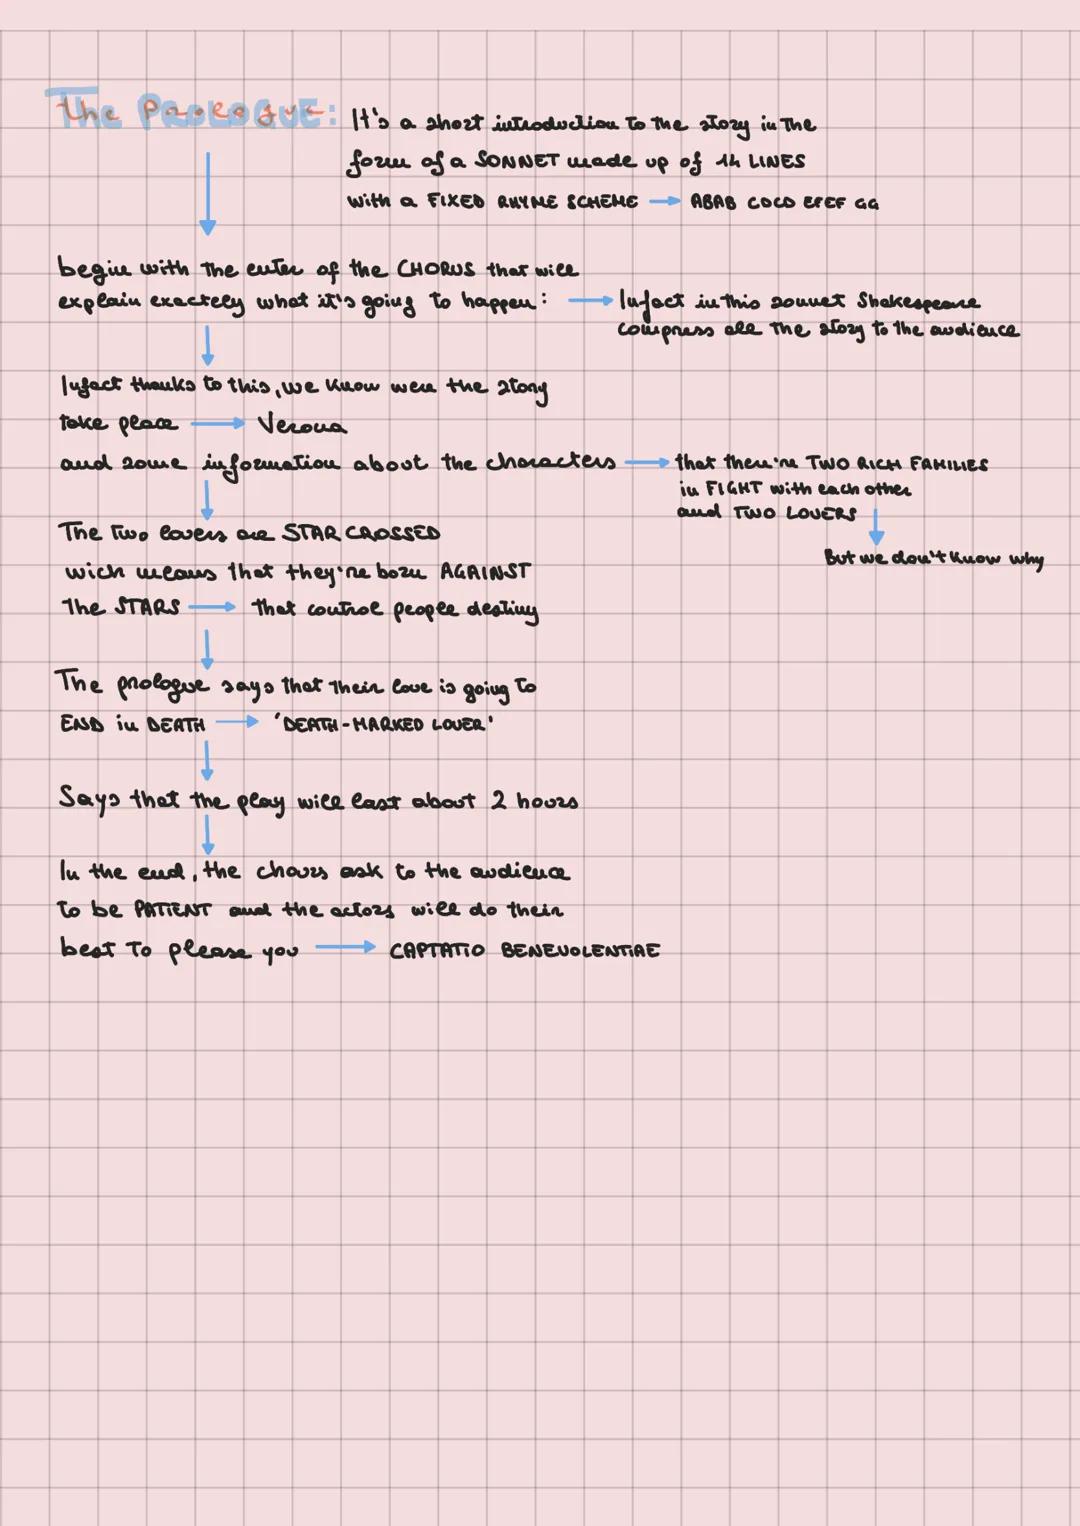 The PROLOGUE:
It's a short introduction to the story in the
form of a SONNET made up of 14 LINES
with a FIXED RHYME SCHEME → ABAB CDCD EFEF GG
begin with the enter of the CHORUS that will
explain exactely what it's going to happen: → Infact in this sonnet Shakespeare
compress all the story to the audience
Infact thanks to this, we know were the story
take place → Verona
and some information about the characters → that there're TWO RICH FAMILIES
in FIGHT with each other
and TWO LOVERS
But we don't know why
The two lovers are STAR CROSSED
wich means that they're born AGAINST
the STARS → that control people destiny
The prologue says that their love is going to
END in DEATH → 'DEATH-MARKED LOVER'
Says that the play will last about 2 hours
In the end, the chours ask to the audience
to be PATIENT and the actors will do their
best to please you → CAPTATIO BENEVOLENTIAE